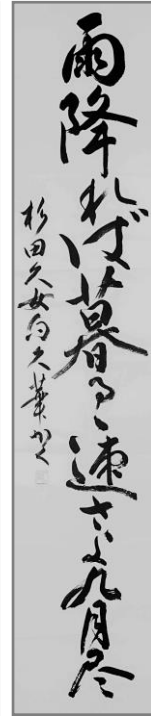 雨降れば暮るゝ速さよ九月尽
杉田久女句大華かく